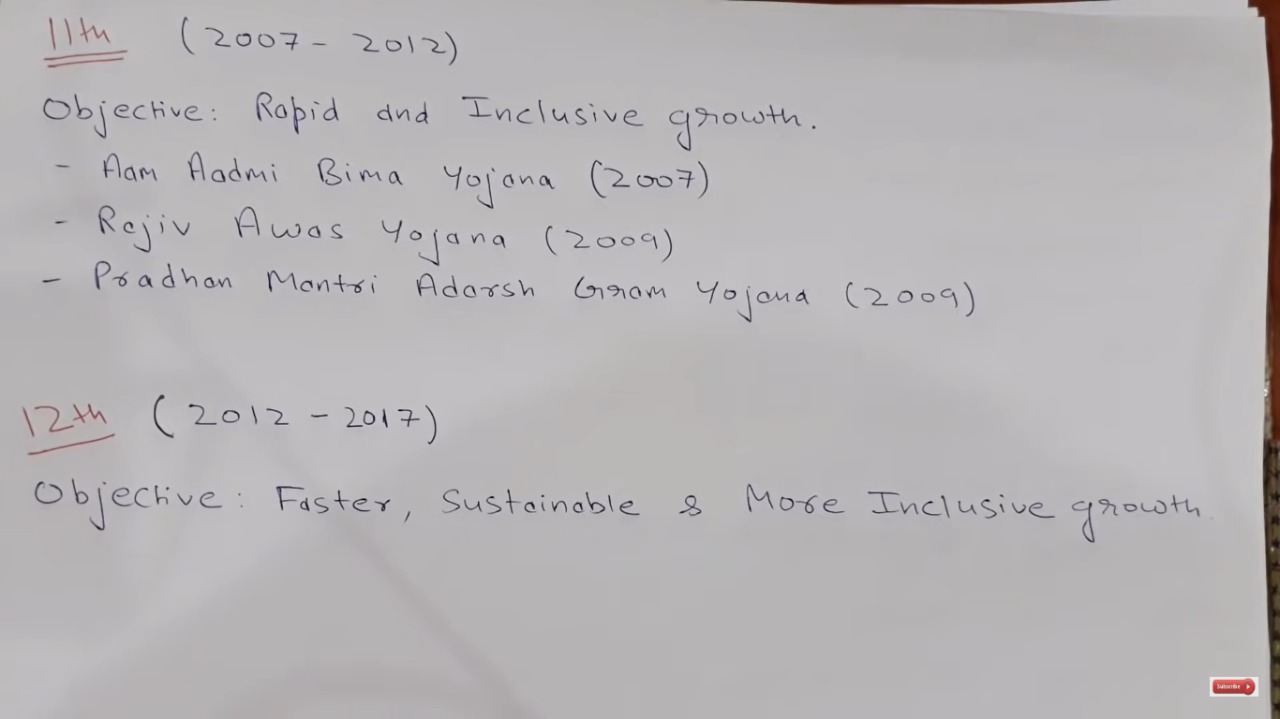 11th (2007 - 2012)
Objective: Rapid and Inclusive growth.
- Aam Aadmi Bima Yojana (2007)
- Rajiv Awas Yojana (2009)
- Pradhan Mantri Adarsh Gram Yojana (2009)
12th (2012 - 2017)
Objective: Faster, Sustainable & More Inclusive growth
Subscribe